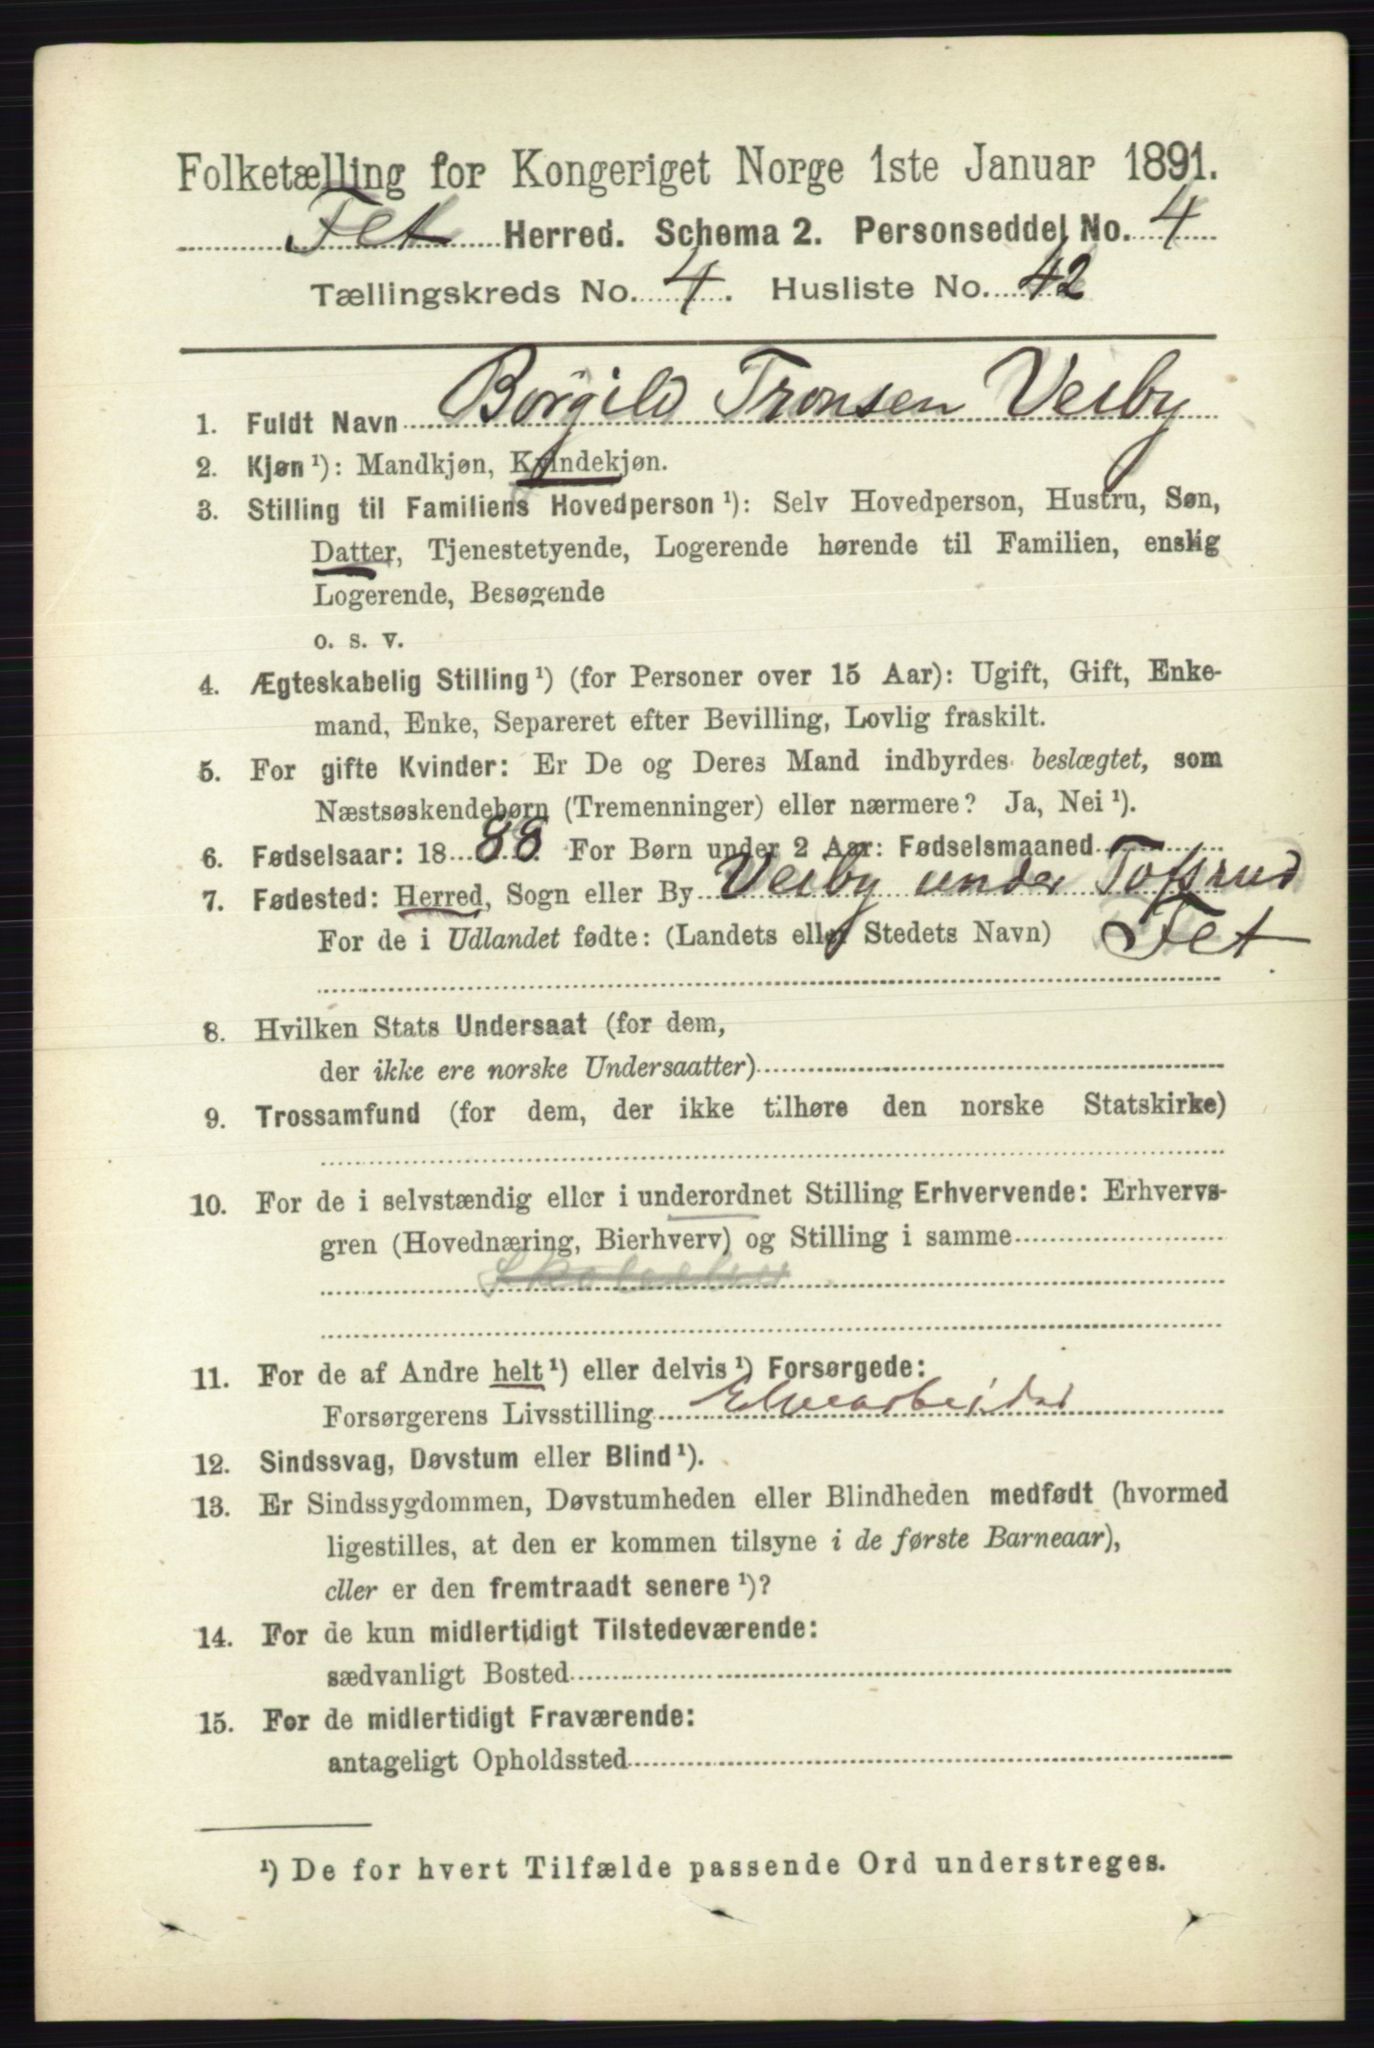 Folketælling for Kongeriget Norge 1ste Januar 1891.
Fet Herred. Schema 2. Personseddel No. 4
Tællingskreds No. 4. Husliste No. 42
1. Fuldt Navn Borgild Tronsen Veiby
2. Kjøn ¹): Mandkjøn, Kvindekjøn.
3. Stilling til Familiens Hovedperson ¹): Selv Hovedperson, Hustru, Søn,
Datter, Tjenestetyende, Logerende hørende til Familien, enslig
Logerende, Besøgende
o. s. v.
4. Ægteskabelig Stilling ¹) (for Personer over 15 Aar): Ugift, Gift, Enke-
mand, Enke, Separeret efter Bevilling, Lovlig fraskilt.
5. For gifte Kvinder: Er De og Deres Mand indbyrdes beslægtet, som
Næstsøskendebørn (Tremenninger) eller nærmere? Ja, Nei ¹).
6. Fødselsaar: 1888. For Børn under 2 Aar: Fødselsmaaned
7. Fødested: Herred, Sogn eller By Veiby under Tofsrud
For de i Udlandet fødte: (Landets eller Stedets Navn) Fet
8. Hvilken Stats Undersaat (for dem,
der ikke ere norske Undersaatter)
9. Trossamfund (for dem, der ikke tilhøre den norske Statskirke)
10. For de i selvstændig eller i underordnet Stilling Erhvervende: Erhvervs-
gren (Hovednæring, Bierhverv) og Stilling i samme
11. For de af Andre helt ¹) eller delvis ¹) Forsørgede:
Forsørgerens Livsstilling Elvearbeider
12. Sindssvag, Døvstum eller Blind ¹).
13. Er Sindssygdommen, Døvstumheden eller Blindheden medfødt (hvormed
ligestilles, at den er kommen tilsyne i de første Barneaar),
eller er den fremtraadt senere ¹)?
14. For de kun midlertidigt Tilstedeværende:
sædvanligt Bosted
15. For de midlertidigt Fraværende:
antageligt Opholdssted
¹) De for hvert Tilfælde passende Ord understreges.